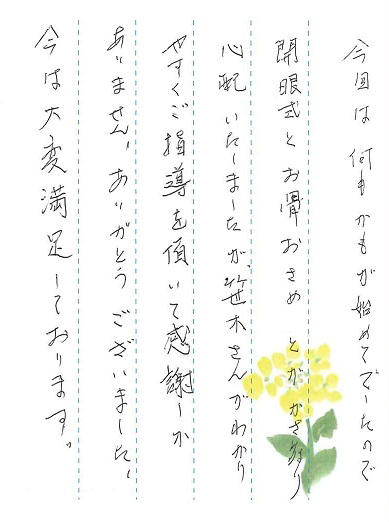 今回は何もかもが始めてでしたので
開眼式とお骨おさめとがかさなり
心配いたしましたが、笹木さんがわかり
やすくご指導を頂いて感謝しか
ありません、ありがとうございました、
今は大変満足しております。